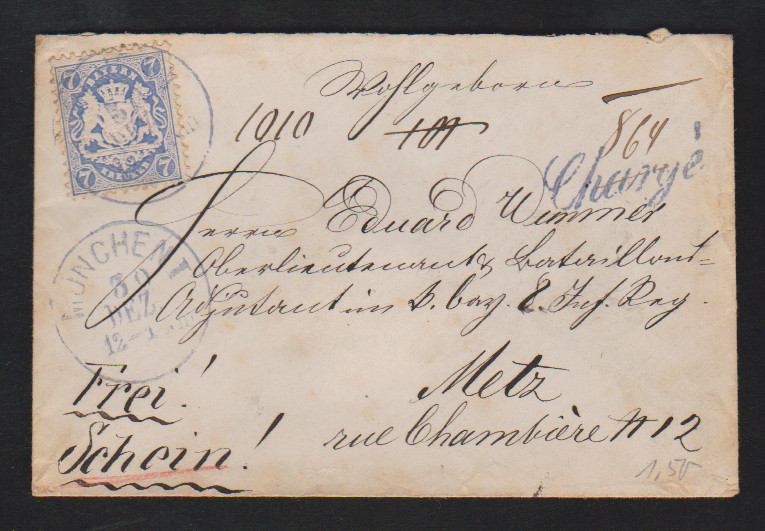 7 BAYERN 7
7 KREUZER 7
Wohlgeborn
1010 101 864
Chargé
Herrn Eduard Wimmer
Oberlieutenant & Bataillons-
Adjutant im k. bay. 8. Inf. Reg.
MÜNCHEN I
30
DEZ
12-1
Frei!
Metz
Schein!
rue Chambière N 12
1,50